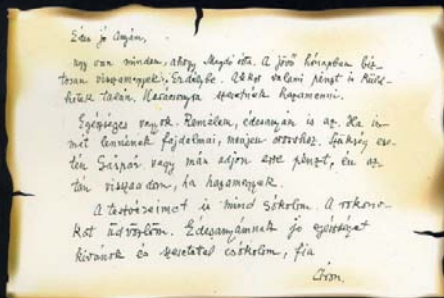 Édes jó Anyám,
úgy van minden, ahogy Magdó írta. A jövő hónapban biz-
tosan visszamegyek Erdélybe. Akkor valami pénzt is küld-
hetek talán. Karácsonyra szeretnék hazamenni.
Egészséges vagyok. Remélem, édesanyám is az. Ha is-
mét lennének fájdalmai, menjen orvoshoz. Szükség es-
tén Gáspár vagy más adjon erre pénzt, én az-
tán visszaadom, ha hazamegyek.
A testvéreimet is mind csókolom. A rokono-
kat üdvözlöm. Édesanyámnak jó egészséget
kívánok és szeretettel csókolom, fia
Áron.